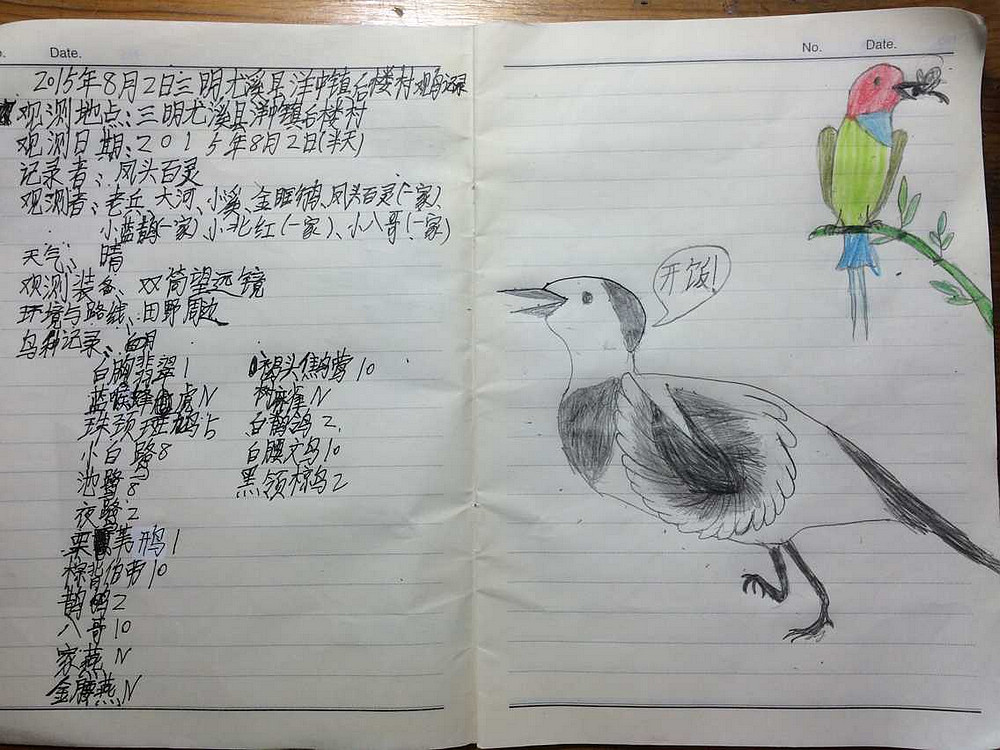 Date.
2015年8月2日三明尤溪县洋中镇后楼村观鸟记录
观测地点:三明尤溪县洋中镇后楼村
观测日期:2015年8月2日(半天)
记录者:凤头百灵
观测者:老兵、大河、小溪、金眶鸻、凤头百灵(一家)、
小蓝鹊(一家)、小北红(一家)、小八哥(一家)
天气:晴
观测装备:双筒望远镜
环境与路线:田野周边
鸟种记录:
白胸翡翠 1
蓝喉蜂虎 N
珠颈斑鸠 5
小白鹭 8
池鹭 8
夜鹭 2
栗苇鳽 1
棕背伯劳 10
鹊鸲 2
八哥 10
家燕 N
金腰燕 N
褐头鹪莺 10
麻雀 N
白鹡鸰 2
白腰文鸟 10
黑领椋鸟 2
No. Date.
开饭!